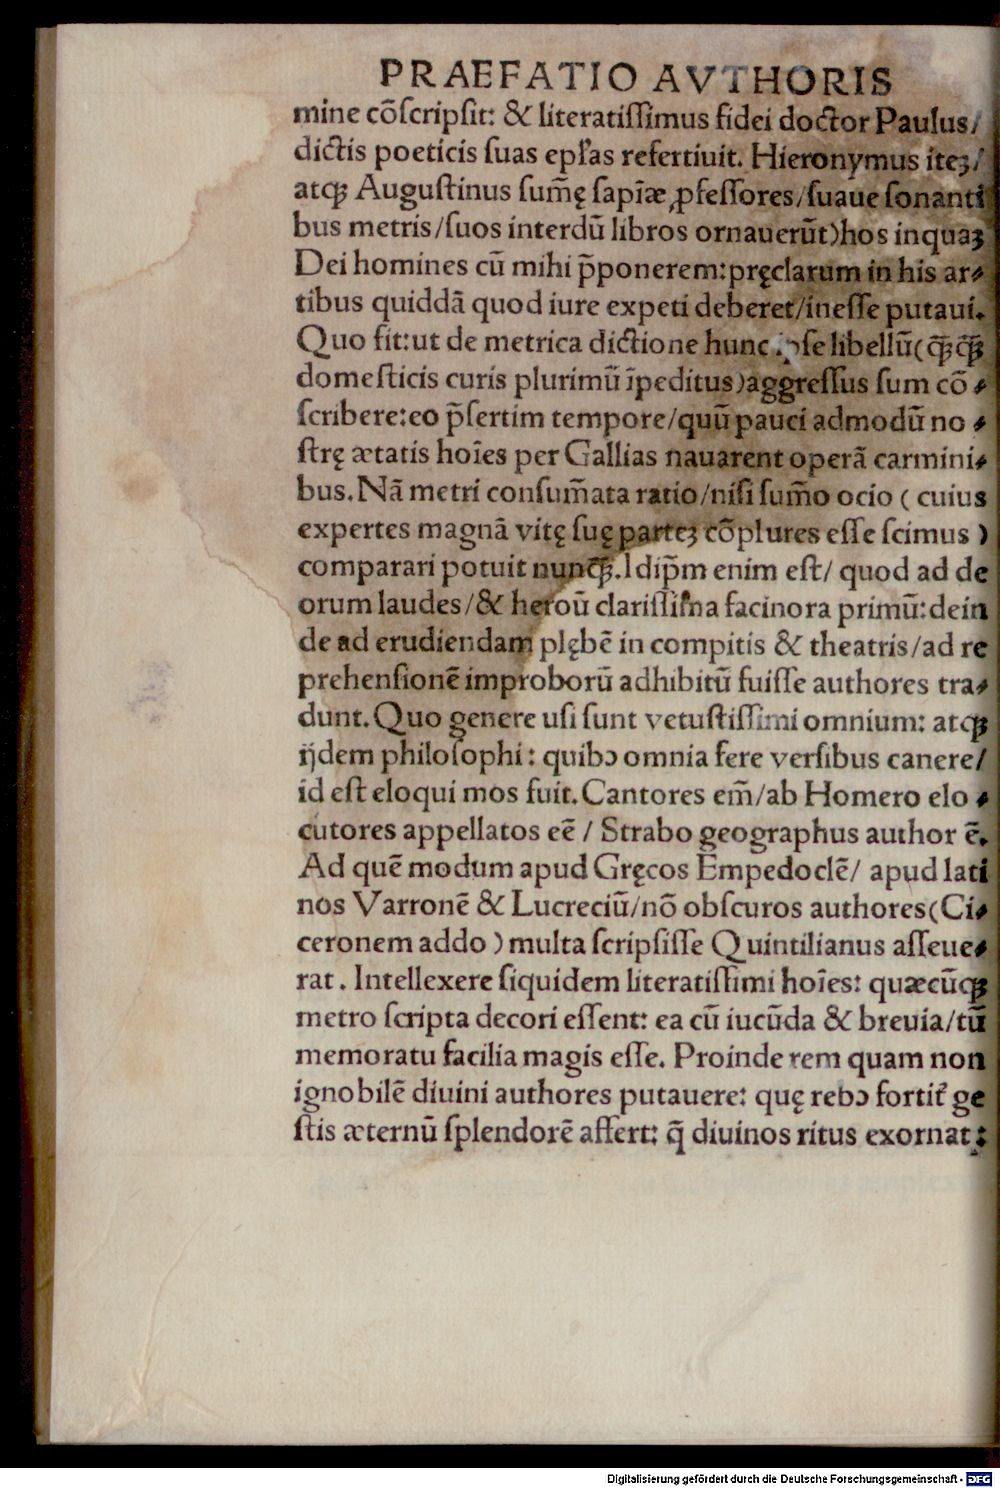 PRAEFATIO AVTHORIS
mine cõſcripſit: & literatiſſimus fidei doctor Paulus/
dictis poeticis ſuas epľas refertiuit. Hieronymus iteʒ/
atqꝫ Auguſtinus ſum̃ę ſapĩæ ꝓfeſſores/ſuaue ſonanti
bus metris/ſuos interdũ libros ornauerũt)hos inquaʒ
Dei homines cũ mihi p̃ponerem:pręclarum in his ar⸗
tibus quiddã quod iure expeti deberet/ineſſe putaui.
Quo fit:ut de metrica dictione hunc ipſe libellũ(q̃ꝫq̃ꝫ
domeſticis curis plurimũ ĩpeditus)aggreſſus ſum cõ⸗
ſcribere:eo p̃ſertim tempore/quũ pauci admodũ no⸗
ſtrę ætatis hoĩes per Gallias nauarent operã carmini⸗
bus.Nã metri conſum̃ata ratio/niſi ſum̃o ocio ( cuius
expertes magnã vitę ſuę parteʒ cõplures eſſe ſcimus )
comparari potuit nunq̃ꝫ.Idip̃m enim eſt/ quod ad de
orum laudes/& heroũ clariſſima facinora primũ:dein
de ad erudiendam plębẽ in compitis & theatris/ad re
prehenſionẽ improborũ adhibitũ fuiſſe authores tra⸗
dunt.Quo genere uſi ſunt vetuſtiſſimi omnium: atqꝫ
ijdem philoſophi: quibꝰ omnia fere verſibus canere/
id eſt eloqui mos fuit.Cantores em̃/ab Homero elo⸗
cutores appellatos eẽ / Strabo geographus author ẽ.
Ad quẽ modum apud Gręcos Empedoclẽ/ apud lati
nos Varronẽ & Lucreciũ/nõ obſcuros authores(Ci⸗
ceronem addo ) multa ſcripſiſſe Quintilianus aſſeue⸗
rat. Intellexere ſiquidem literatiſſimi hoĩes: quæcũqꝫ
metro ſcripta decori eſſent: ea cũ iucũda & breuia/tũ
memoratu facilia magis eſſe. Proinde rem quam non
ignobilẽ diuini authores putauere: quę rebꝰ fortiť ge
ſtis æternũ ſplendorẽ affert: q̃ diuinos ritus exornat:
Digitalisierung gefördert durch die Deutsche Forschungsgemeinschaft - DFG